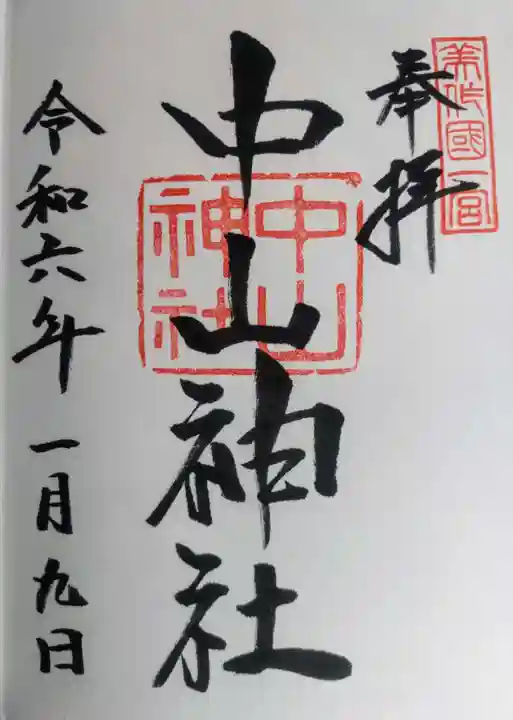 美作國一宮
奉拝
中山神社
中山
神社
令和六年一月九日